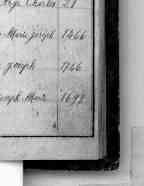 Charles 21
Marie Joseph 1466
Joseph 1766
Joseph Marie 1692